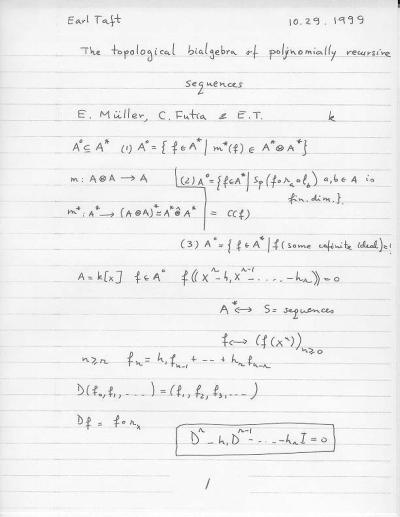 Earl Taft 10.29.1999
The topological bialgebra of polynomially recursive
sequences
E. Müller, C. Futia & E.T. k
A° ⊆ A* (1) A° = { f ∈ A* | m*(f) ∈ A* ⊗ A* }
m: A⊗A → A (2) A° = { f ∈ A* | Sp(f∘r_a∘l_b) a,b ∈ A is
fin. dim. }
m*: A* → (A⊗A)* = A* ⊗̂ A* = C(f)
(3) A° = { f ∈ A* | f(some cofinite ideal) = 0
A = k[x] f ∈ A° f((x^r - h_1 x^{r-1} - .... - h_r)) = 0
A* ↔ S = sequences
f ↔ (f(x^n))_{n≥0}
n ≥ r f_n = h_1 f_{n-1} + -- + h_r f_{n-r}
D(f_0, f_1, ....) = (f_1, f_2, f_3, ....)
Df = f∘r_x
D^r - h_1 D^{r-1} - .... - h_r I = 0
1